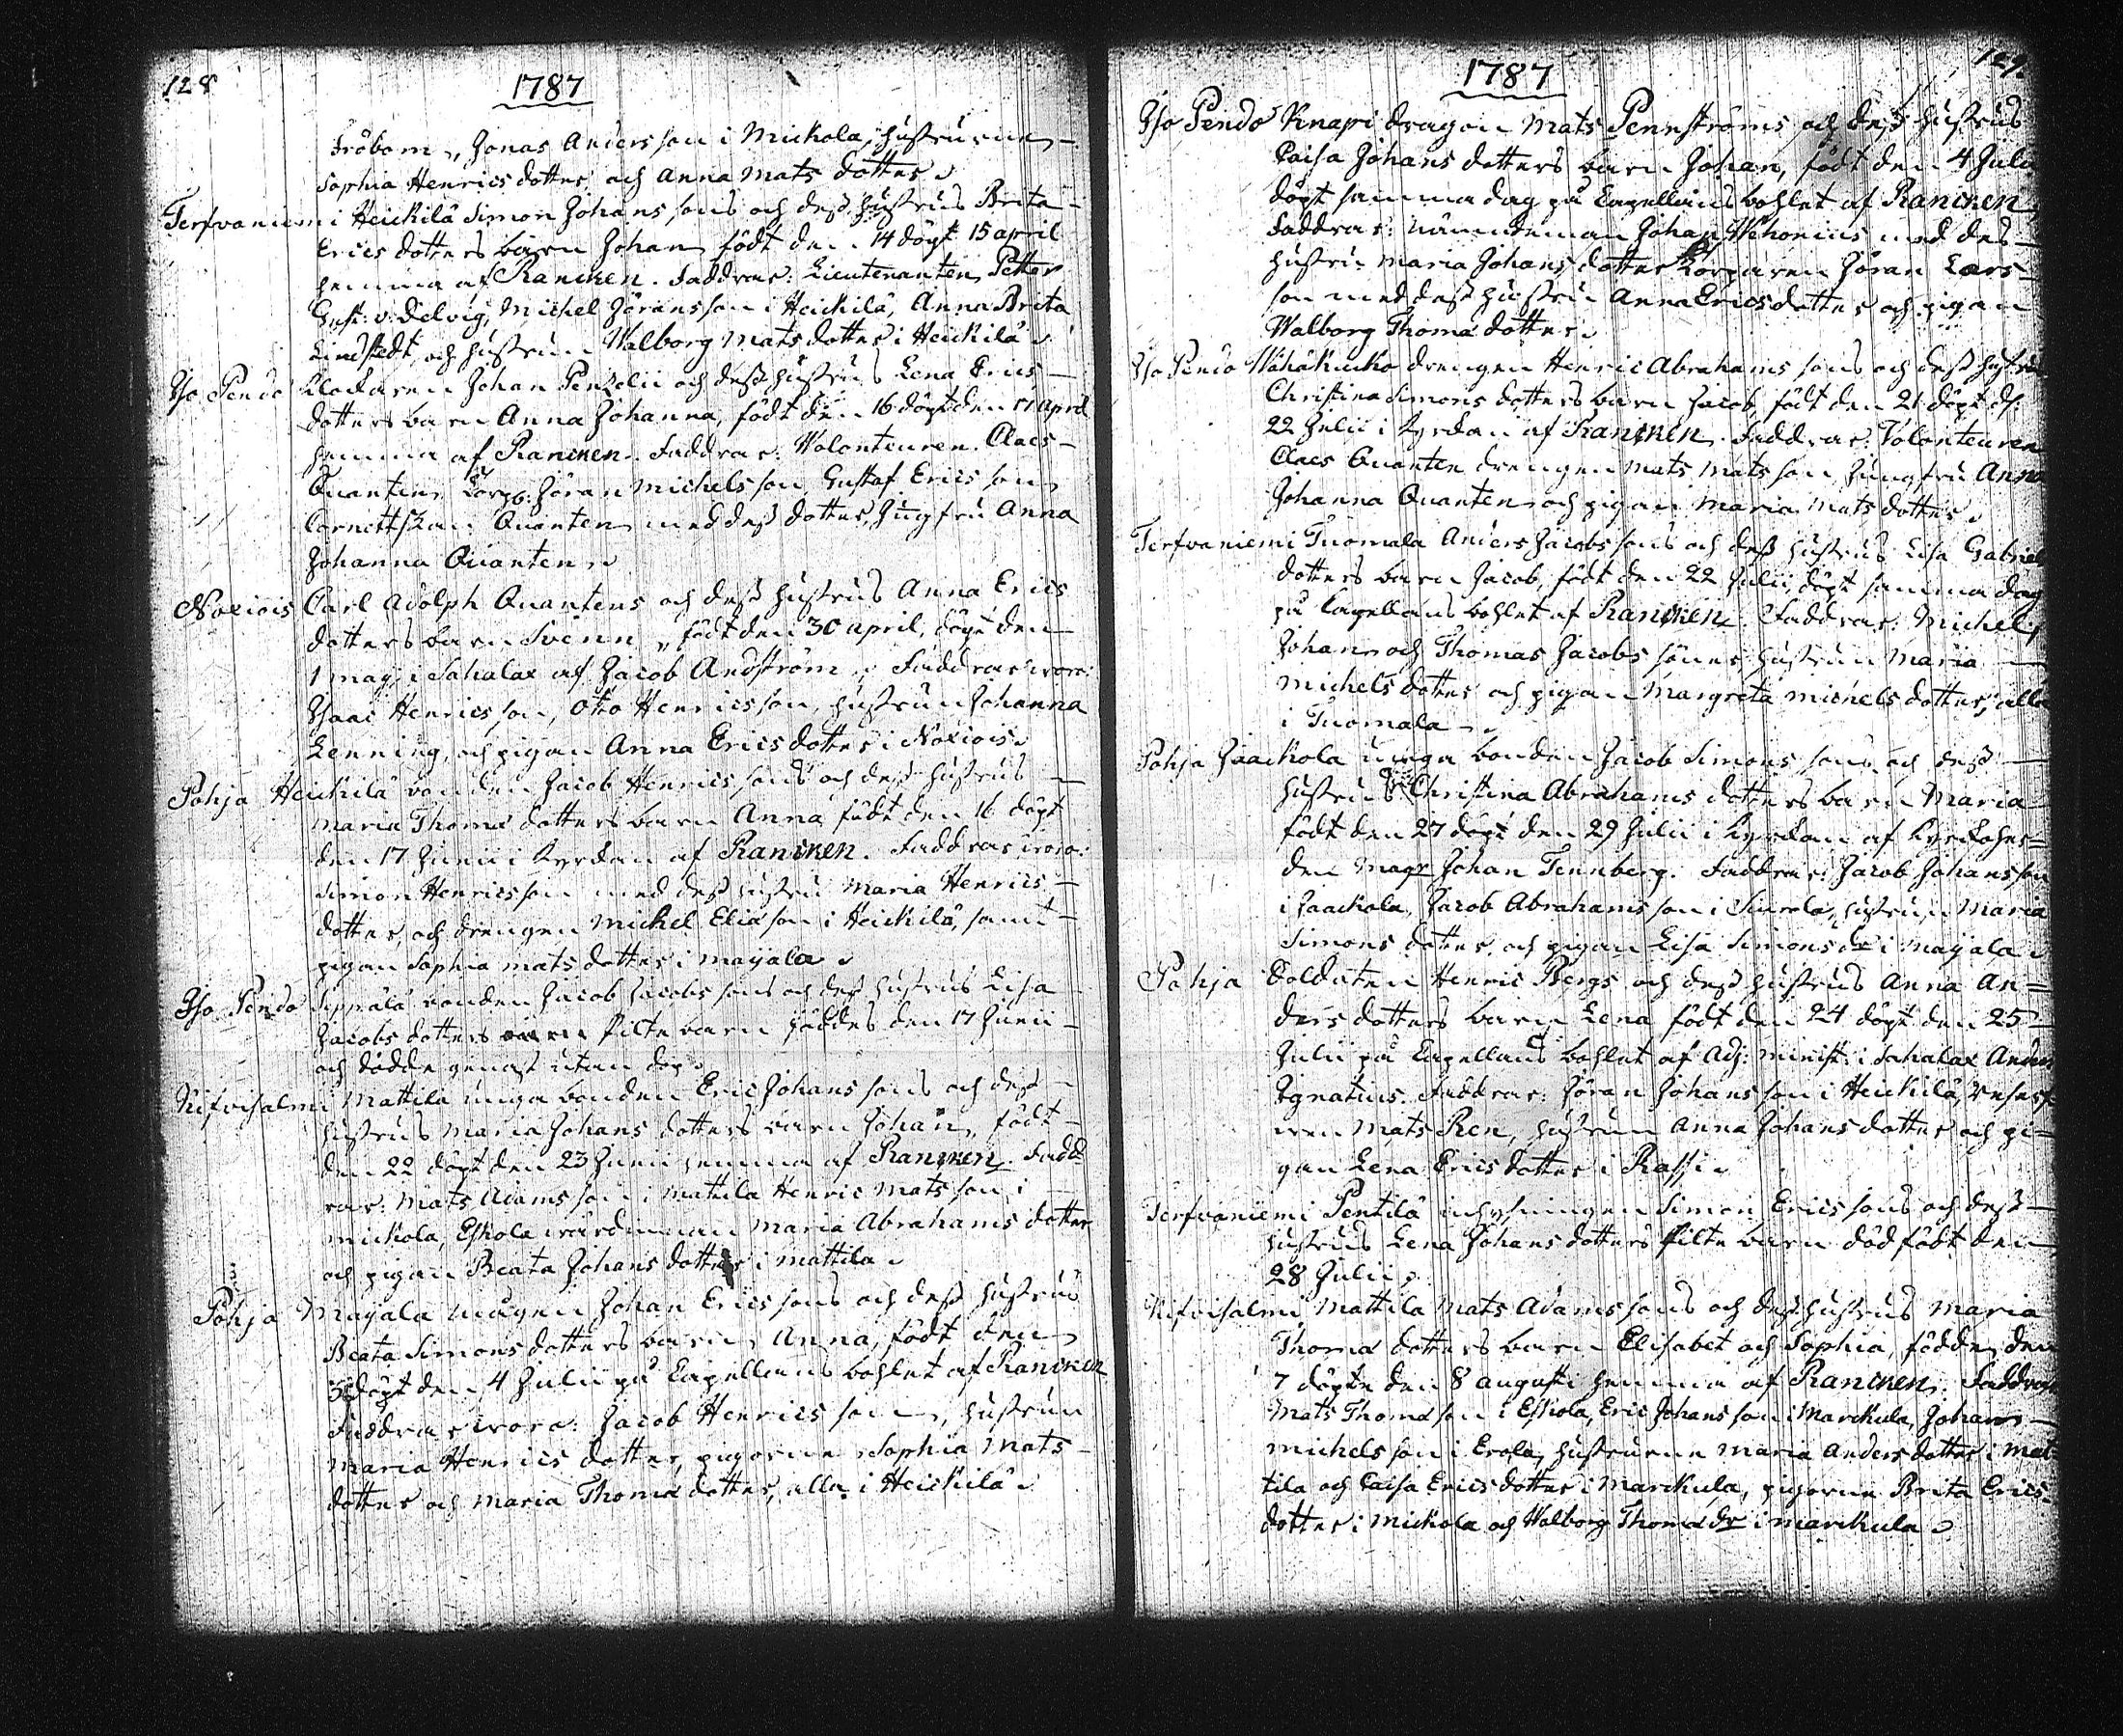 128
1787
Fröbom, Jonas Andersson i Mickola, hustrurne
Sophia Henricsdotter och Anna Matsdotter
Terfvaniemi Heickilä Simon Johanssons och dess hustrus Brita
Ericsdotters barn Johan, födt den 14 döpt 15 april
hemma af Rancken. Faddrar: Lieutenanten Petter
Gust: v: Delvig, Michel Jöransson i Heickilä, Anna Brita
Lindstedt, och hustrun Walborg Matsdotter i Heickilä
Iso Pendo Klockaren Johan Penzelii och dess hustrus Lena Erics
dotters barn Anna Johanna, födt den 16 döpt den 17 april
hemma af Rancken. Faddrar: Wolonteuren Claes
Quanten, Jöran Michelsson Gustaf Ericsson,
Cornettskan Quanten med dess dotter, Jungfru Anna
Johanna Quanten.
Noxiois Carl Adolph Quantens och dess hustrus Anna Erics
dotters barn Svenn, födt den 30 april, döpt den
1 maji i Sahalax af Jacob Andström. Faddrar woro:
Isaac Henricsson, Otto Henricsson, hustrun Johanna
Lenning, och pigan Anna Ericsdotter i Noxiois.
Pohja Heickilä bonden Jacob Henricssons och dess hustrus
Maria Thomædotters barn Anna födt den 16 döpt
den 17 Junii i Kyrckan af Rancken. Faddrar woro:
Simon Henricsson med dess hustru Maria Henrics
dotter, och drengen Michel Eliæson i Heickilä, samt
pigan Sophia Matsdotter i Maijala.
Iso Pendo Seppälä bonden Jacob Jacobssons och dess hustrus Lisa
Jacobsdotters filtebarn föddes den 17 Junii
och dödde genast utan dop.
Kifvisalmi Mattila unga bonden Eric Johanssons och dess
hustrus Maria Johansdotters barn Johan, födt
den 22 döpt den 23 Junii hemma af Rancken. Fadd
rar: Mats Adamsson i Mattila Henric Matsson i
Mickola, Eskola wärdinnan Maria Abrahamsdotter
och pigan Beata Johansdotter i Mattila.
Pohja Maijala mågen Johan Ericssons och dess hustrus
Beata Simonsdotters barn, Anna, födt den
3 döpt den 4 Julii på Capellans bohlet af Rancken
Faddrar woro: Jacob Henricsson, hustrun
Maria Henricsdotter, pigorne Sophia Mats
dotter och Maria Thomædotter, alla i Heickilä.
129.
1787
Iso Pendo Knapi dragon Mats Pennströms och dess hustrus
Caisa Johansdotters barn Johan, födt den 4 Julii
döpt samma dag på Capellans bohlet af Rancken,
Faddrar: Nämndeman Johan Wehonius med des
hustru Maria Johansdotter Korporen Jöran Lars
son med dess hustru Anna Ericsdotter och pigan
Walborg Thomædotter.
Iso Pendo Wähäkucko drengen Henric Abrahamssons och dess hustrus
Christina Simonsdotters barn Jacob, födt den 21 döpt d.
22 Julii i Kyrckan af Rancken. Faddrar: Volonteuren
Claes Quanten drengen Mats Matsson Jungfru Anna
Johanna Quanten och pigan Maria Matsdotter.
Terfvaniemi Tuomala Anders Jacobssons och dess hustrus Lisa Gabriels
dotters barn Jacob, födt den 22 Julii, döpt samma dag
på Capellans bohlet af Rancken. Faddrar: Michel,
Johan och Thomas Jacobs söner hustrun Maria
Michelsdotter och pigan Margreta Michelsdotter, alla
i Tuomala.
Pohja Jaackola unga bonden Jacob Simonssons och dess
hustrus Christina Abrahamsdotters barn Maria
födt den 27 döpt den 29 Julii i Kyrckan af Kyrckoher=
den Magr Johan Tennberg. Faddrar: Jacob Johansson
i Jaackola, Jacob Abrahamsson i Simola, hustrun Maria
Simonsdotter och pigan Lisa Simons dr i Maijala.
Pohja Soldaten Henric Bergs och dess hustrus Anna An=
dersdotters barn Lena födt den 24 döpt den 25
Julii på Capellans bohlet af Adj: minist: i Sahalax Anders
Ignatius. Faddrar: Jöran Johansson i Heickilä, reserf
wen Mats Ren, hustrun Anna Johansdotter och pi=
gan Lena Ericsdotter i Rassi.
Terfvaniemi Pentilä inhysningen Simon Ericssons och dess
hustrus Lena Johansdotters filtebarn dödfödt den
28 Julii.
Kifvisalmi Mattila Mats Adamssons och dess hustrus Maria
Thomædotters barn Elisabet och Sophia, födde den
7 döpte den 8 augusti hemma af Rancken. Faddrar
Mats Thomæson i Eskola, Eric Johansson i Marckula, Johan
Michelsson i Erola, hustrurne Maria Andersdotter i Mat
tila och Caisa Ericsdotter i Marckula, pigorne Brita Erics
dotter i Mickola och Walborg Thomæ dr i Marckula.